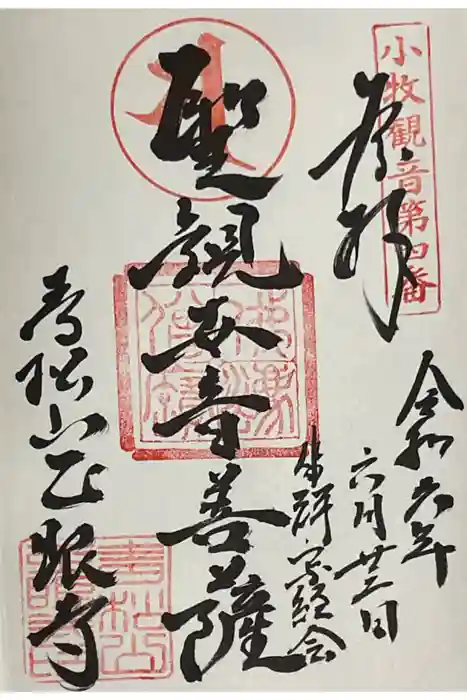 小牧観音第四番
奉拝
令和六年
六月廿三日
写経会
聖観世音菩薩
佛法僧寶
青松山正眼寺